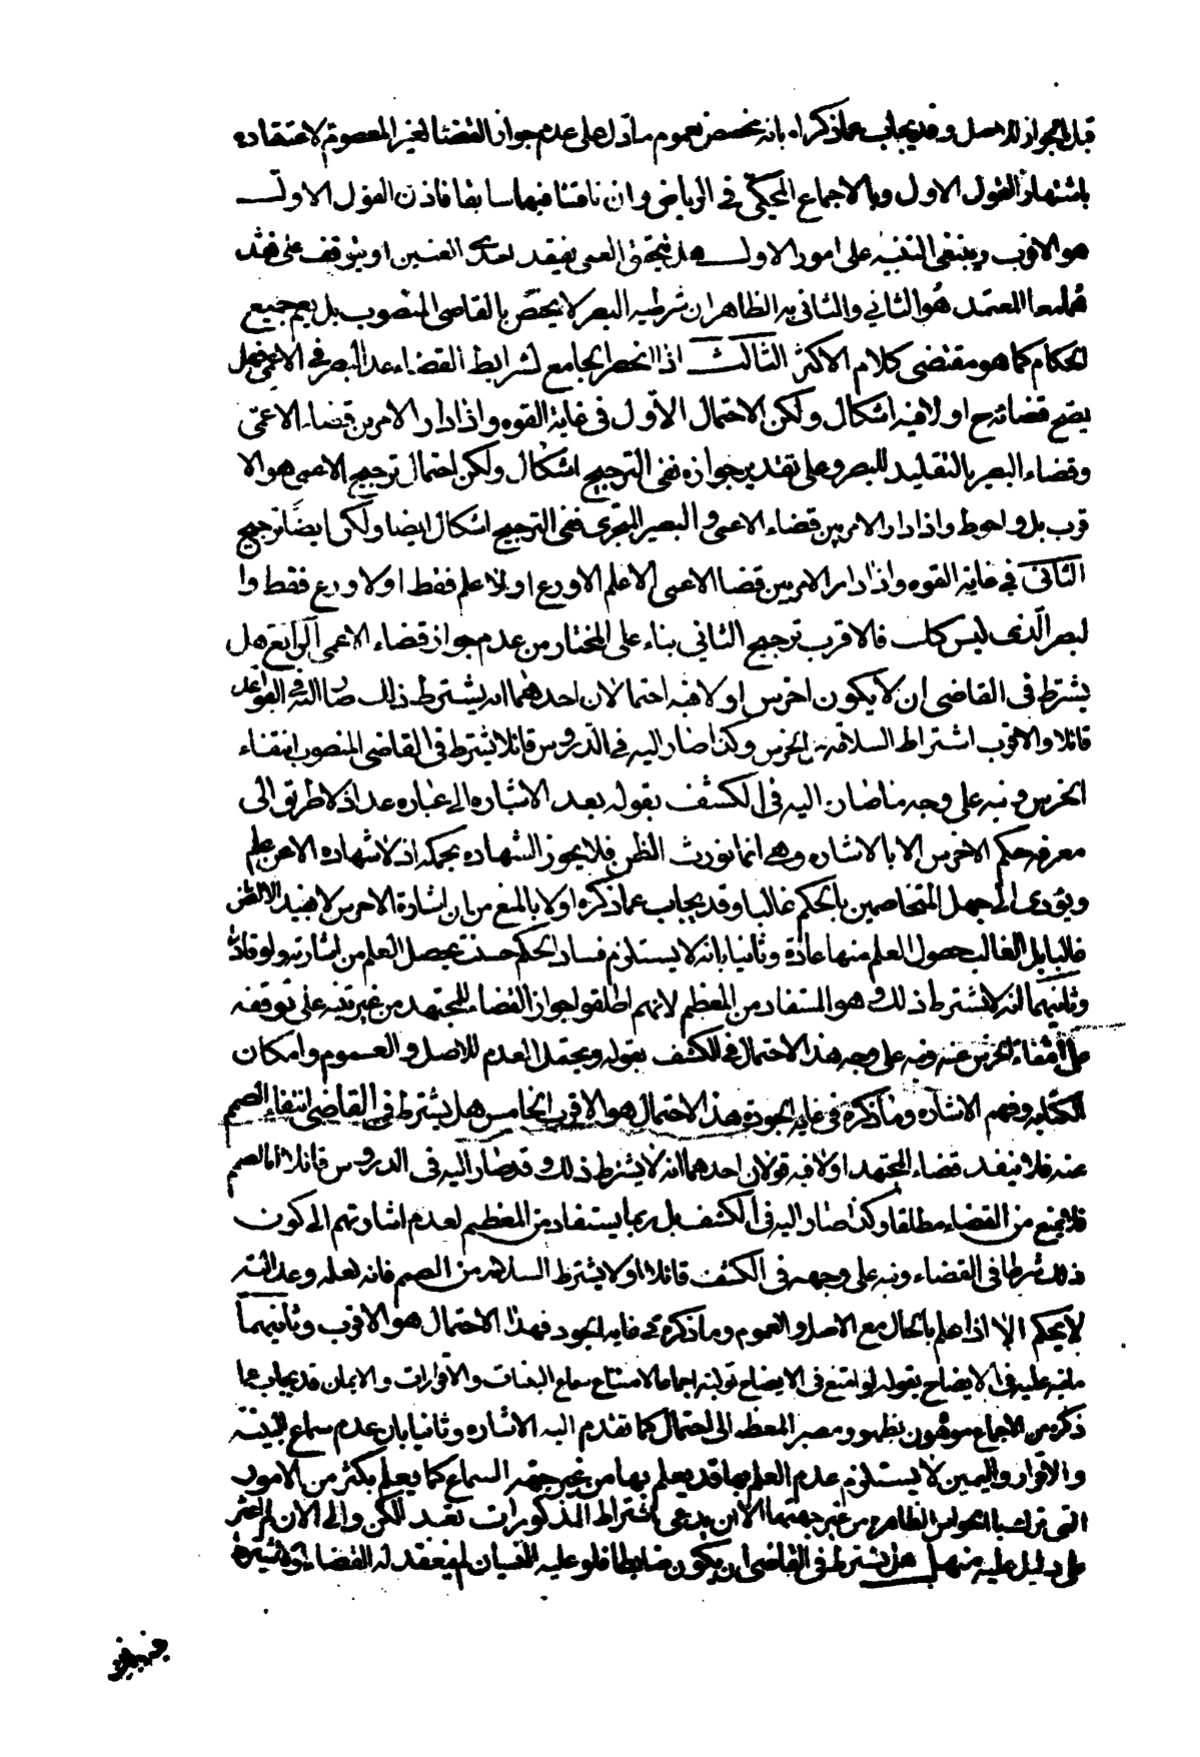 قبل الجواز للاصل وقد يجاب عما ذكراه بانه مخصص بعموم ما دل على عدم جواز القضا لغير المعصوم لاعتقاده
باشتهار القول الاول وبالاجماع المحكى فى الرياض وان ناقشنا فيهما سابقا فاذن القول الاول
هو الاقرب وينبغى التنبيه على امور الاول هل يتحقق العمى بفقد احدى العينين او يتوقف على فقد
هما معا المعتمد هو الثاني والثانى به الظاهر ان شرطيه البصر لا يختص بالقاضى المنصوب بل يعم جميع
الحكام كما هو مقتضى كلام الاكثر الثالث اذا انحصر الجامع لشرايط القضاء عدا البصر فى الاعمى فهل
يصح قضائه ح او لا فيه اشكال ولكن الاحتمال الاول فى غاية القوه واذا دار الامر بين قضاء الاعمى
وقضاء البصير بالتقليد للبصير وعلى تقدير جوازه ففى الترجيح اشكال ولكن احتمال ترجيح الاعمى هو الا
قرب بل واحوط واذا دار الامر بين قضاء الاعمى والبصير المتجزى ففى الترجيح اشكال ايضا ولكن ايضا ترجيح
الثانى في غاية القوه واذا دار الامر بين قضا الاعمى الاعلم الاورع او الاعلم فقط او الاورع فقط وا
لبصير الذى ليس كك فالاقرب ترجيح الثاني بناء على المختار من عدم جواز قضاء الاعمى الرابع هل
يشترط فى القاضى ان لا يكون اخرس او لا فيه احتمالان احدهما انه يشترط ذلك صار اليه فى القواعد
قائلا والاقرب اشتراط السلامة من الخرس وكذا صار اليه فى الدروس قائلا يشترط فى القاضى المنصوب انتفاء
الخرس ونبه على وجه ما صار اليه فى الكشف بقوله بعد الاشاره الى عباره عد اذ لا طريق الى
معرفه حكم الاخرس الا بالاشاره وهى انما تورث الظن فلا يجوز الشهاده بحكمه اذ لا شهاده الا عن علم
ويؤدى الى جهل المتخاصمين بالحكم غالبا وقد يجاب عما ذكره اولا بالمنع من ان اشارة الاخرس لا تفيد الا الظن
غالبا بل الغالب حصول العلم منها عادة وثانيا بانه لا يستلزم فساد الحكم حيث يحصل العلم من اشارته ولو قادرا
وثانيهما انه لا يشترط ذلك وهو المستفاد من المعظم لانهم اطلقوا جواز القضاء للمجتهد من غير تنبيه على توقفه
على انتفاء الخرس عنه ونبه على وجه هذا الاحتمال فى الكشف بقوله ويحتمل العدم للاصل والعموم وامكان
الكتابه وفهم الاشاره وما ذكره فى غاية الجودة هذا الاحتمال هو الاقرب الخامس هل يشترط فى القاضى انتفاء الصمم
عنه فلا ينفد قضاء المجتهد او لا فيه قولان احدهما انه لا يشترط ذلك وقد صار اليه فى الدروس قائلا اما الصمم
فلا يمنع من القضاء مطلقا وكذا صار اليه فى الكشف بل ربما يستفاد من المعظم لعدم اشارتهم الى كون
ذلك شرطا فى القضاء ونبه على وجهه فى الكشف قائلا اولا يشترط السلامه من الصمم فانه لعلمه وعدالته
لا يحكم الا اذا علم بالحال مع الاصل والعموم وما ذكره فى غايه الجود فهذا الاحتمال هو الاقرب وثانيهما
ما نبه عليه فى الايضاح بقوله لو امتنع فى الايضاح توليته اجماعا لامتناع سماع البينات والاقرارات والايمان قد يجاب عما
ذكره من الاجماع موهون بظهور مصير المعظم الى احتمال كما تقدم اليه الاشاره وثانيا بان عدم سماع البينه
والاقرار واليمين لا يستلزم عدم العلم بها قد يعلم بها من غير جهه السماع كما يعلم بكثير من الامور
التى تدرك بالحواس الظاهره من غير جهتها الا ان يدعى اشتراط المذكورات تعبد لكن والى الان لم اعثر
على دليل عليه منها هل يشترط فى القاضى ان يكون ضابطا فلو غلبه النسيان لم ينعقد له القضاء